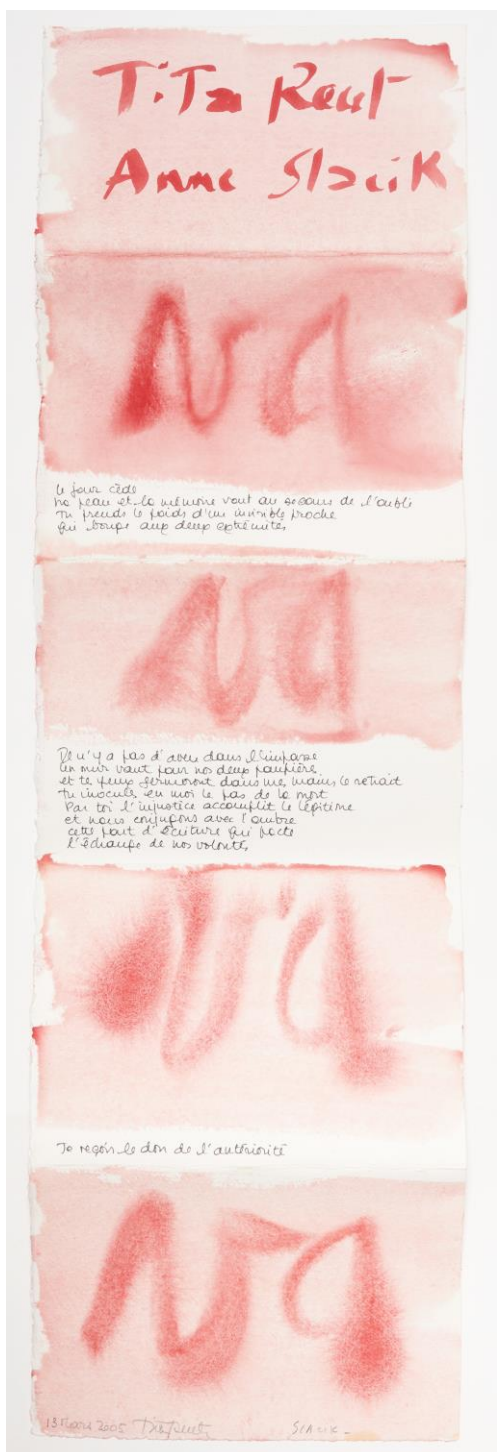 TiTa Reut
Anne Slacik
Na
le jour cède
ta peau et la mémoire vont au secours de l'oubli
Tu prends le poids d'un invisible proche
qui bouge aux deux extrémités
Na
Il n'y a pas d'aveu dans l'impasse
un mur vaut pour nos deux paupières
et tes yeux fermeront dans mes mains le retrait
tu inocules en moi le pas de la mort
Par toi l'injustice accomplit le légitime
et nous conjugons avec l'ombre
cette part d'écriture qui pacte
l'échange de nos volontés
Na
Je reçois le don de l'antériorité
Na
13 Mars 2005 Tita Reut SLACIK-